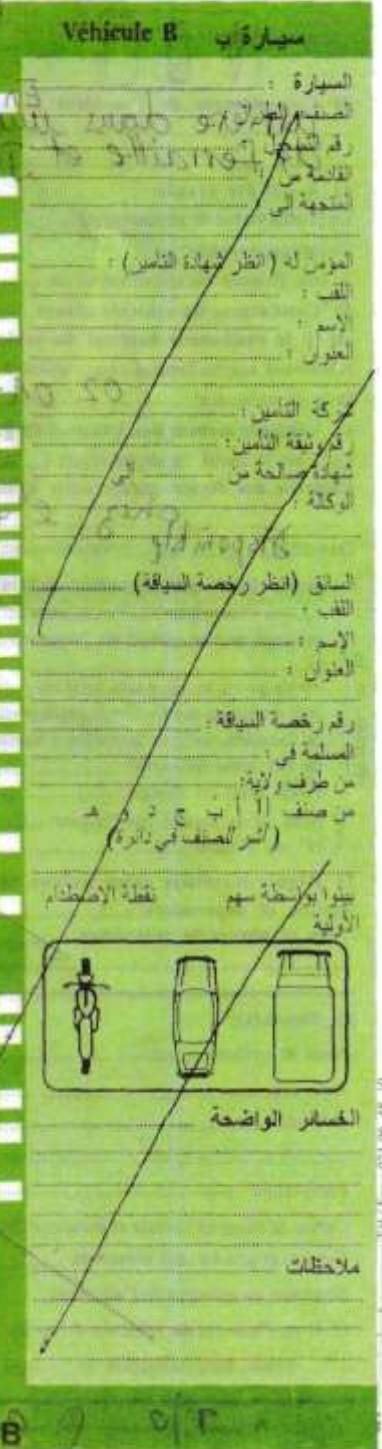 Véhicule B سيارة ب
السيارة :
الصنف الطراز :
رقم التسجيل
القادمة من
المتجهة الى
المؤمن له (انظر شهادة التامين) :
اللقب :
الاسم :
العنوان :
شركة التأمين :
رقم وثيقة التأمين :
شهادة صالحة من الى
الوكالة :
السائق (انظر رخصة السياقة)
اللقب :
الاسم :
العنوان :
رقم رخصة السياقة :
المسلمة في :
من طرف ولاية :
من صنف أ أ ب ج د و هـ
(أشر للصنف في دائرة)
بينوا بواسطة سهم نقطة الاصطدام
الأولية
الخسائر الواضحة
ملاحظات
B